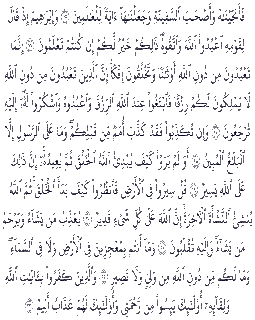 فَأَنجَيْنَٰهُ وَأَصْحَٰبَ ٱلسَّفِينَةِ وَجَعَلْنَٰهَآ ءَايَةً لِّلْعَٰلَمِينَ ۝ وَإِبْرَٰهِيمَ إِذْ قَالَ
لِقَوْمِهِ ٱعْبُدُوا۟ ٱللَّهَ وَٱتَّقُوهُ ذَٰلِكُمْ خَيْرٌ لَّكُمْ إِن كُنتُمْ تَعْلَمُونَ ۝ إِنَّمَا
تَعْبُدُونَ مِن دُونِ ٱللَّهِ أَوْثَٰنًا وَتَخْلُقُونَ إِفْكًا إِنَّ ٱلَّذِينَ تَعْبُدُونَ مِن دُونِ ٱللَّهِ
لَا يَمْلِكُونَ لَكُمْ رِزْقًا فَٱبْتَغُوا۟ عِندَ ٱللَّهِ ٱلرِّزْقَ وَٱعْبُدُوهُ وَٱشْكُرُوا۟ لَهُۥٓ إِلَيْهِ
تُرْجَعُونَ ۝ وَإِن تُكَذِّبُوا۟ فَقَدْ كَذَّبَ أُمَمٌ مِّن قَبْلِكُمْ وَمَا عَلَى ٱلرَّسُولِ إِلَّا
ٱلْبَلَٰغُ ٱلْمُبِينُ ۝ أَوَلَمْ يَرَوْا۟ كَيْفَ يُبْدِئُ ٱللَّهُ ٱلْخَلْقَ ثُمَّ يُعِيدُهُۥٓ إِنَّ ذَٰلِكَ
عَلَى ٱللَّهِ يَسِيرٌ ۝ قُلْ سِيرُوا۟ فِى ٱلْأَرْضِ فَٱنظُرُوا۟ كَيْفَ بَدَأَ ٱلْخَلْقَ ثُمَّ ٱللَّهُ
يُنشِئُ ٱلنَّشْأَةَ ٱلْءَاخِرَةَ إِنَّ ٱللَّهَ عَلَىٰ كُلِّ شَىْءٍ قَدِيرٌ ۝ يُعَذِّبُ مَن يَشَآءُ وَيَرْحَمُ
مَن يَشَآءُ وَإِلَيْهِ تُقْلَبُونَ ۝ وَمَآ أَنتُم بِمُعْجِزِينَ فِى ٱلْأَرْضِ وَلَا فِى ٱلسَّمَآءِ
وَمَا لَكُم مِّن دُونِ ٱللَّهِ مِن وَلِىٍّ وَلَا نَصِيرٍ ۝ وَٱلَّذِينَ كَفَرُوا۟ بِـَٔايَٰتِ ٱللَّهِ
وَلِقَآئِهِۦٓ أُو۟لَٰٓئِكَ يَئِسُوا۟ مِن رَّحْمَتِى وَأُو۟لَٰٓئِكَ لَهُمْ عَذَابٌ أَلِيمٌ ۝